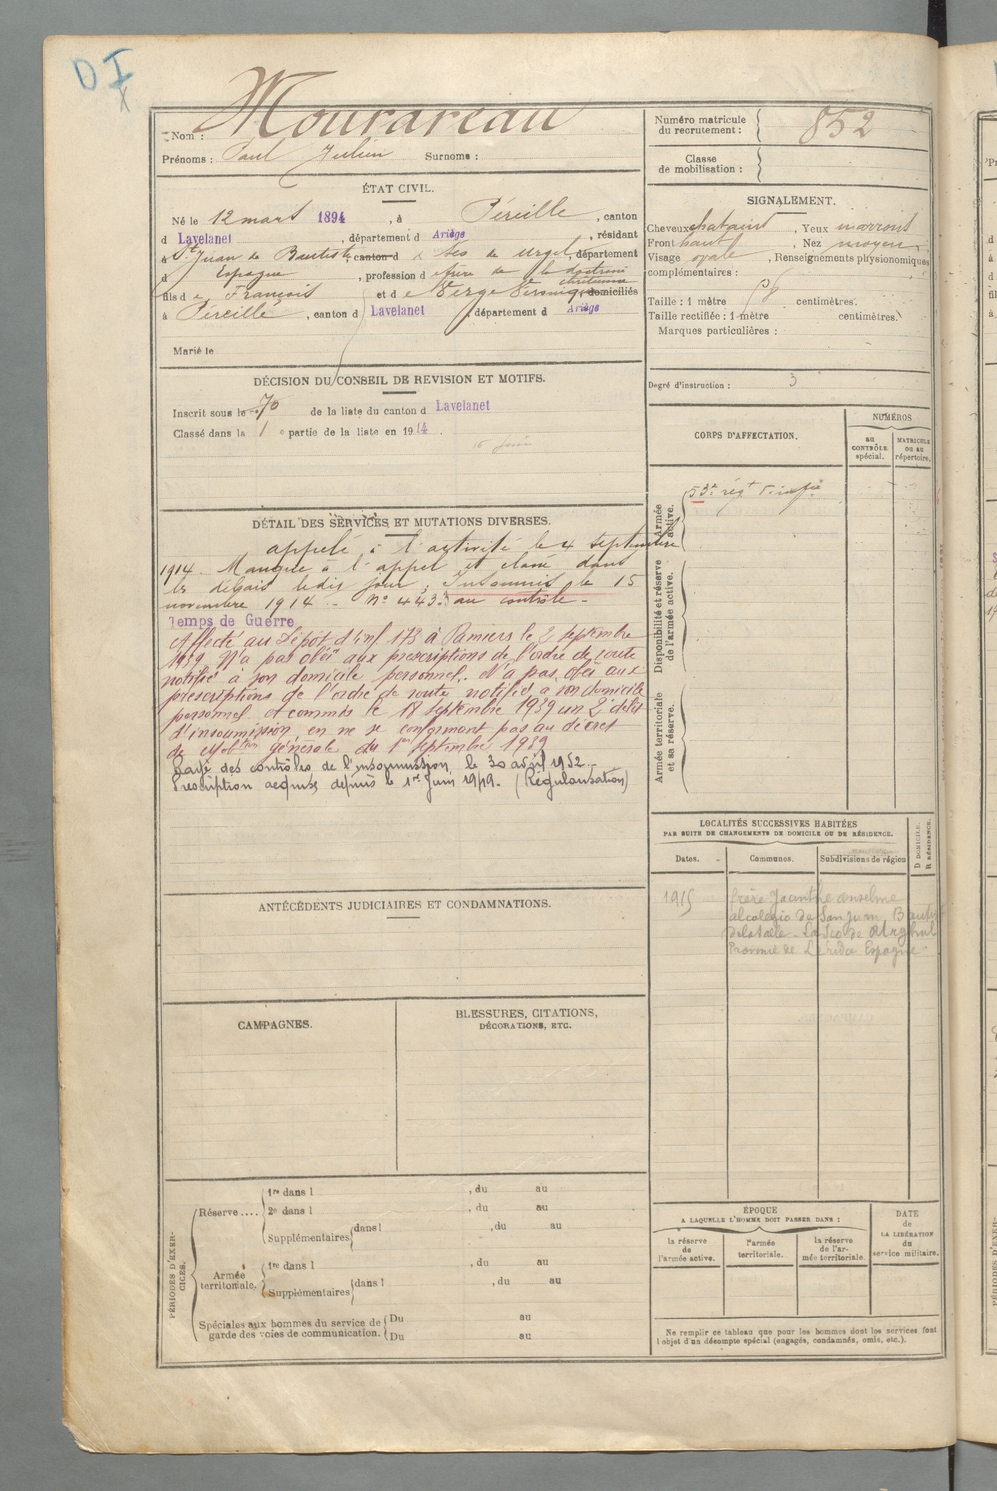 DI
Nom : Mourareau
Prénoms : Paul Julien Surnoms :
Numéro matricule du recrutement : 852
Classe de mobilisation :
ÉTAT CIVIL.
Né le 12 mars 1894, à Péreille, canton
d Lavelanet, département d Ariège, résidant
à St Juan de Bautista canton d Séo de Urgel, département
d Espagne, profession d frère de la doctrine chrétienne
fils de François et de Verge domiciliés
à Péreille, canton d Lavelanet département d Ariège
Marié le
SIGNALEMENT.
Cheveux chatains, Yeux marrons
Front haut, Nez moyen
Visage ovale, Renseignements physionomiques
complémentaires :
Taille : 1 mètre centimètres.
Taille rectifiée : 1 mètre centimètres.
Marques particulières :
Degré d'instruction : 3
DÉCISION DU CONSEIL DE REVISION ET MOTIFS.
Inscrit sous le no 70 de la liste du canton d Lavelanet
Classé dans la 1e partie de la liste en 1914.
15 juin
DÉTAIL DES SERVICES ET MUTATIONS DIVERSES.
appelé à l'activité le 4 septembre
1914. Manque à l'appel et classé dans
les délais ledit jour ; Insoumis le 15
novembre 1914 - No 443 au contrôle -
Temps de Guerre
Affecté au Dépôt d'Inf 173 à Pamiers le 2 septembre
1939. N'a pas obéi aux prescriptions de l'ordre de route
notifié à son domicile personnel. N'a pas obéi aux
prescriptions de l'ordre de route notifié à son domicile
personnel et commis le 18 septembre 1939 un 2e délit
d'insoumission en ne se conformant pas au décret
de Mobtion générale du 1er septembre 1939
Rayé des contrôles de l'insoumission le 30 avril 1952 -
Prescription acquise depuis le 1er Juin 1949. (Régularisation)
CORPS D'AFFECTATION.
NUMÉROS
au CONTRÔLE spécial.
MATRICULE OU AU répertoire.
Armée active.
53e régt d'infie
Disponibilité et réserve de l'armée active.
Armée territoriale et sa réserve.
LOCALITÉS SUCCESSIVES HABITÉES
PAR SUITE DE CHANGEMENTS DE DOMICILE OU DE RÉSIDENCE.
Dates. Communes. Subdivisions de région
D DOMICILE. R RÉSIDENCE.
1915 frère Jacinthe anselme
al colegio de San Bautis
Lérida Espagne
ANTÉCÉDENTS JUDICIAIRES ET CONDAMNATIONS.
CAMPAGNES.
BLESSURES, CITATIONS,
DÉCORATIONS, ETC.
PÉRIODES D'EXERCICES.
Réserve....
1re dans l , du au
2e dans l , du au
Supplémentaires dans l , du au
Armée territoriale.
1re dans l , du au
Supplémentaires dans l , du au
Spéciales aux hommes du service de garde des voies de communication.
Du au
Du au
ÉPOQUE
A LAQUELLE L'HOMME DOIT PASSER DANS :
la réserve de l'armée active.
l'armée territoriale.
la réserve de l'armée territoriale.
DATE de LA LIBÉRATION du service militaire.
Ne remplir ce tableau que pour les hommes dont les services font
l'objet d'un décompte spécial (engagés, condamnés, omis, etc.).